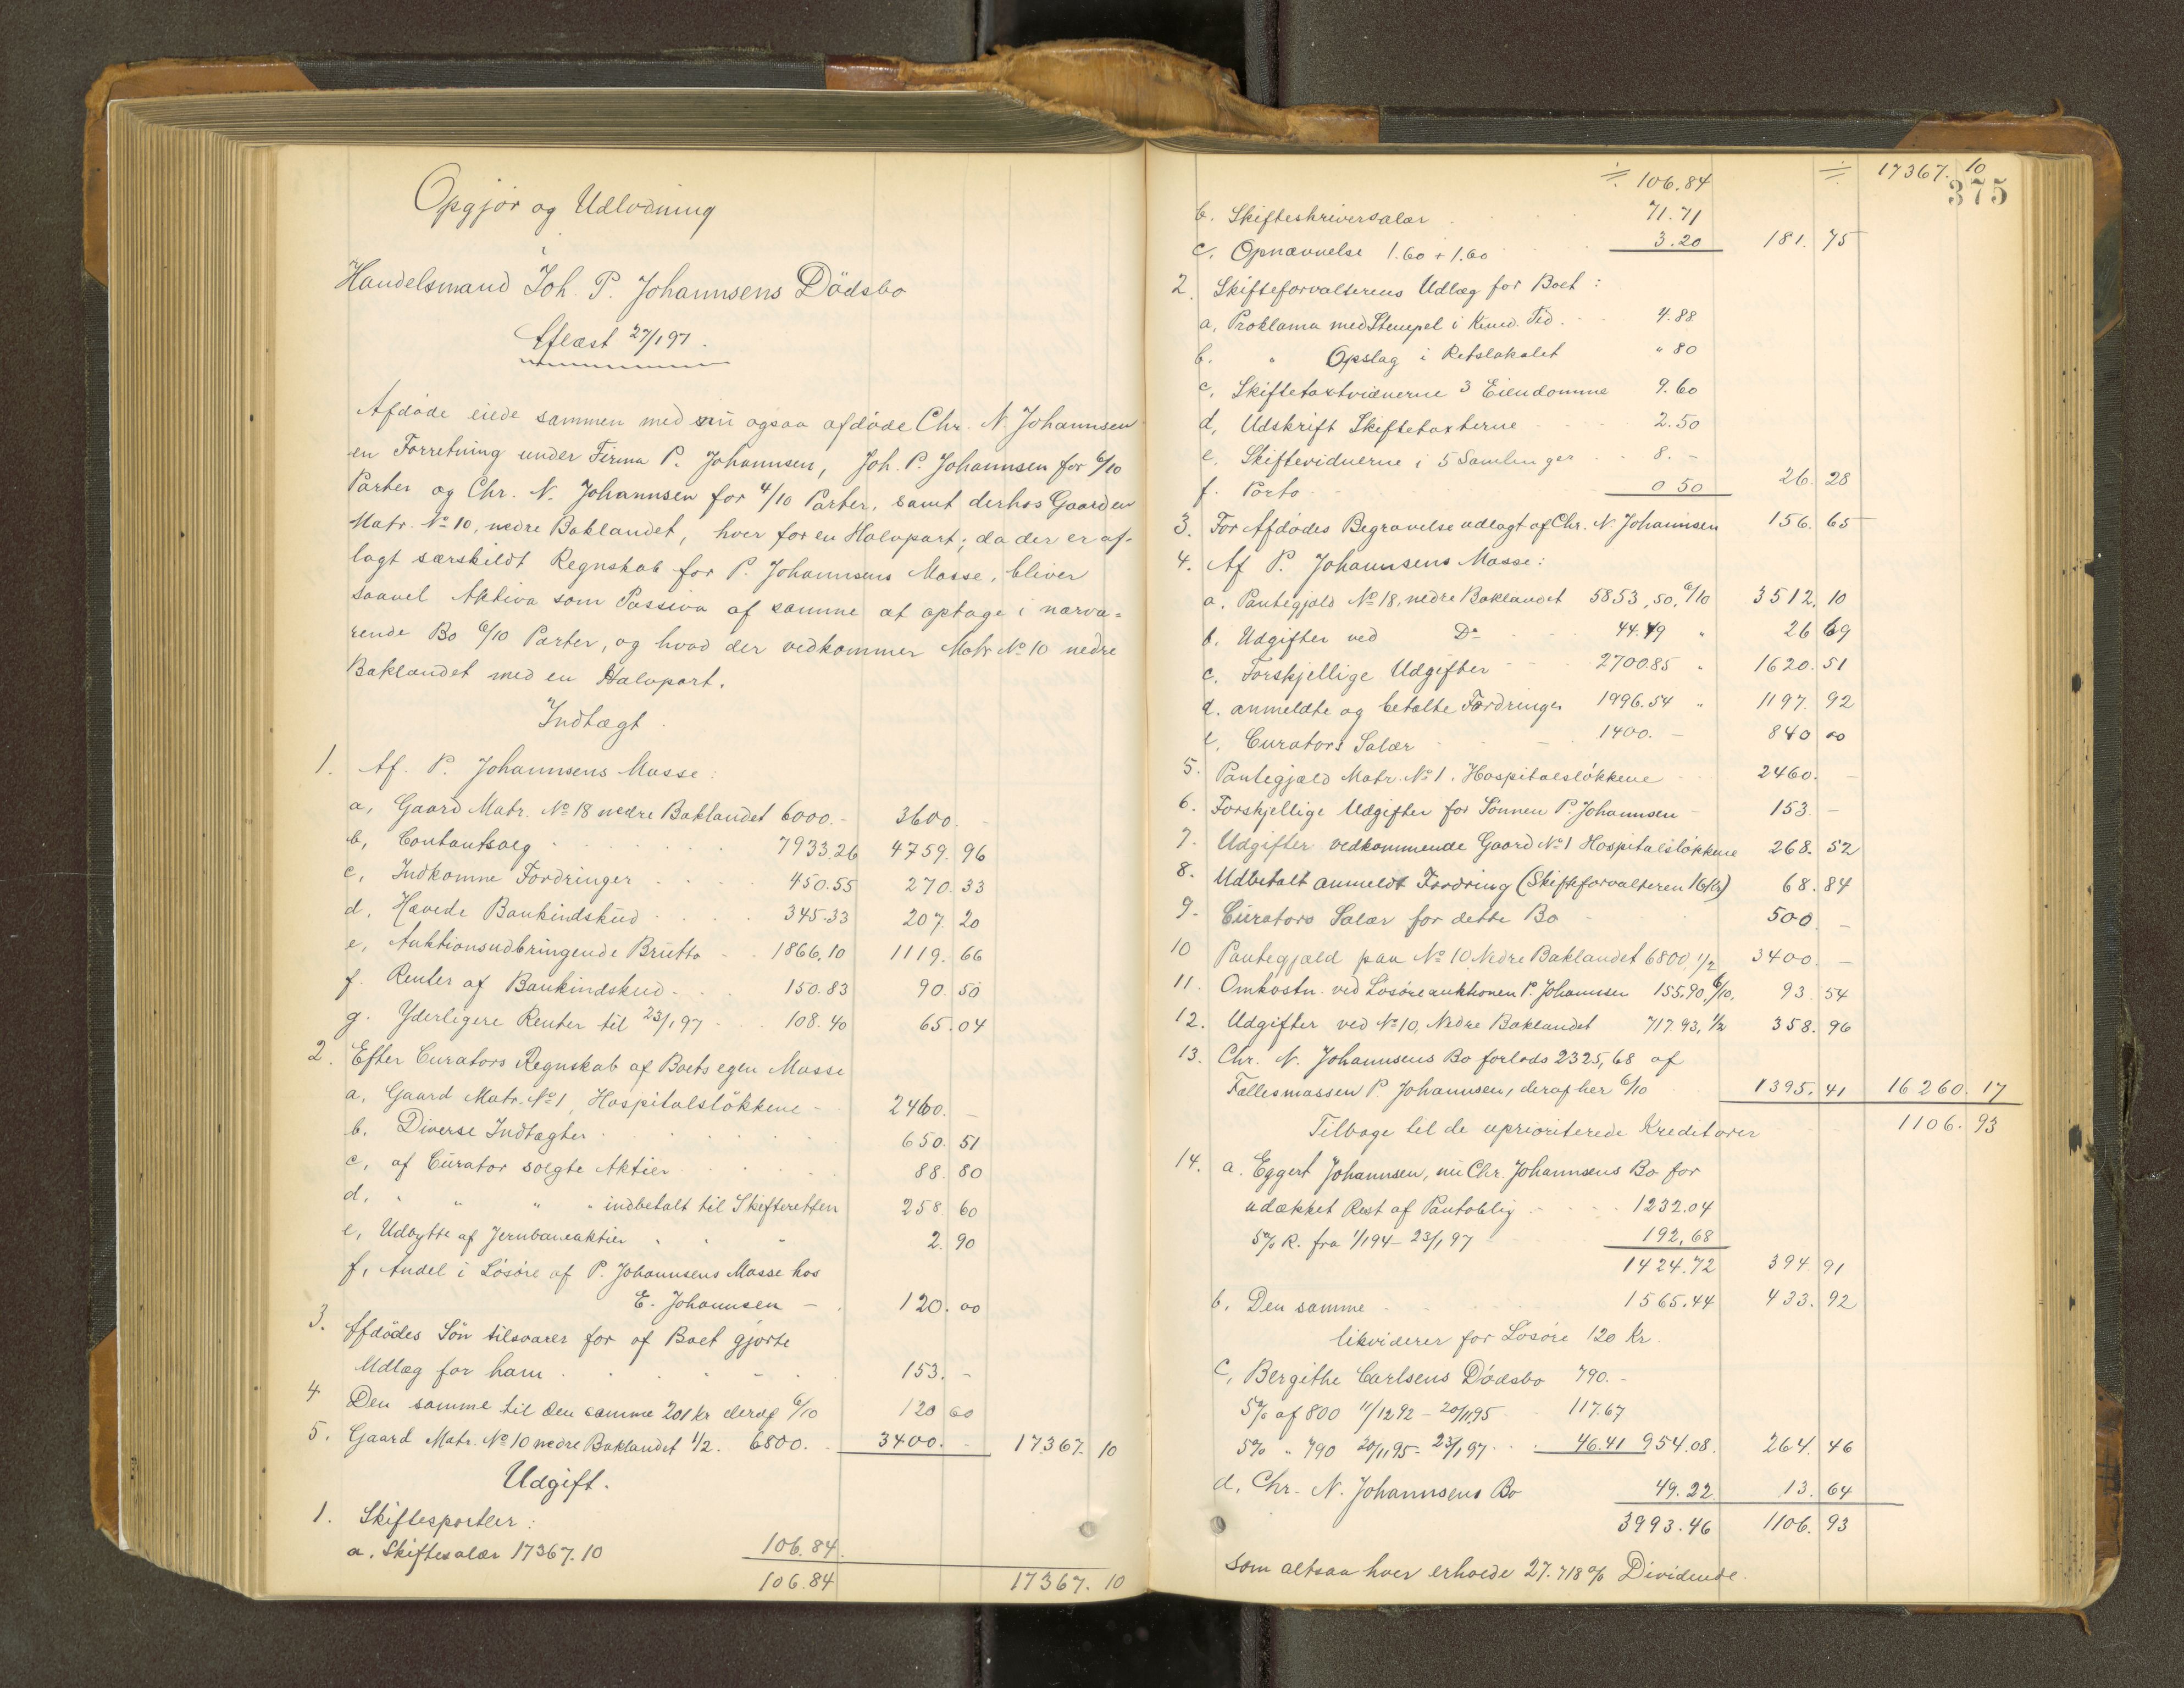 Opgjør og Udlodning
i
Handelsmand Joh. P. Johannsens Dödsbo
Aflæst 27/1 97.
Afdøde eiede sammen med nu ogsaa afdøde Chr. N. Johannsen
en Forretning under Firma P. Johannsen, Joh. P. Johannsen for 6/10
Parter og Chr. N. Johannsen for 4/10 Parter, samt derhos Gaarden
Matr. No 10, nedre Baklandet, hver for en Halvpart; da der er af-
lagt særskildt Regnskab for P. Johannsens Masse, bliver
saavel Aktiva som Passiva af samme at optage i nærva=
rende Bo 6/10 Parter, og hvad der vedkommer Matr No 10 nedre
Baklandet med en Halvpart.
Indtægt.
1. Af P. Johannsens Masse:
a, Gaard Matr. No 18 nedre Baklandet 6000.- 3600. -
b, Contantsalg 7933.26 4759. 96
c, Indkomne Fordringer 450.55 270. 33
d, Hævede Bankindskud 345.33 207. 20
e, Auktionsudbringende Brutto 1866,10 1119. 66
f. Renter af Bankindskud 150.83 90. 50
g. Yderligere Renter til 23/1 97 108.40 65. 04
2. Efter Curators Regnskab af Boets egen Masse
a, Gaard Matr. No 1, Hospitalsløkkene - 2460. -
b. Diverse Indtægter 650. 51
c, af Curator solgte Aktier 88. 80
d. " " " " indbetalt til Skifteretten 258. 60
e, Udbytte af Jernbaneaktier 2. 90
f, Andel i Løsøre af P. Johannsens Masse hos
E. Johannsen - 120. 00
3. Afdødes Søn tilsvarer for af Boet gjorte
Udlæg for ham 153. -
4 Den samme til den samme 201 kr deraf 6/10 120 60
5. Gaard Matr. No 10 nedre Baklandet 1/2. 6800. 3400. - 17367. 10
Udgift.
1. Skiftesportler:
a. Skiftesalær 17367.10 106.84.
106.84 17367. 10
375
÷ 106.84 ÷ 17367. 10
b. Skifteskriversalær 71.71
c. Opnævnelse 1.60 + 1.60 3.20 181. 75
2. Skifteforvalterens Udlæg for Boet:
a, Proklama med Stempel i Kund. Tid. 4.88
b. " Opslag i Retslokalet " 80
c, Skiftetaxtvidnerne 3 Eiendomme 9.60
d, Udskrift Skiftetaxterne 2.50
e. Skiftevidnerne i 5 Samlinger 8. -
f. Porto 0 50 26. 28
3. For Afdødes Begravelse udlagt af Chr. N. Johannsen 156. 65
4. Af P. Johannsens Masse:
a. Pantegjæld No 18, nedre Baklandet 5853,50, 6/10 3512. 10
b. Udgifter ved Do 44.49 " 26 69
c. Forskjellige Udgifter 2700.85 " 1620. 51
d. anmeldte og betalte Fordringer 1996.54 " 1197. 92
e, Curators Salær 1400. - 840 00
5. Pantegjæld Matr. No 1. Hospitalsløkkene 2460. -
6. Forskjellige Udgifter for Sønnen P. Johannsen - 153. -
7. Udgifter vedkommende Gaard No 1 Hospitalsløkkene 268. 52
8. Udbetalt anmeldt Fordring (Skifteforvalteren 16 kr) 68. 84
9. Curators Salær for dette Bo 500. -
10 Pantegjæld paa No 10, Nedre Baklandet 6800, 1/2 3400. -
11. Omkostn. ved Løsøreauktionen P. Johannsen 155.90, 6/10. 93. 54
12. Udgifter ved No 10, Nedre Baklandet 717.93, 1/2 358. 96
13. Chr. N. Johannsens Bo forlods 2325,68 af
Fællesmassen P. Johannsen, deraf her 6/10 1395. 41 16260. 17
Tilbage til de uprioriterede Kreditorer 1106. 93
14. a. Eggert Johannsen, nu Chr. Johannsens Bo for
udækket Rest af Pantoblig 1232.04
5% R. fra 1/1 94 - 23/1 97 192,68
1424.72 394. 91
b. Den samme 1565.44 433. 92
likviderer for Løsøre 120 Kr.
c, Bergithe Carlsens Dødsbo 790. -
5% af 800 11/12 92 - 20/11 95 117.67
5% " 790 20/11 95 - 23/1 97 46.41 954.08. 264. 46
d, Chr. N. Johannsens Bo 49.22 13. 64
3993.46 1106. 93
som altsaa hver erholde 27.718 % Dividende.